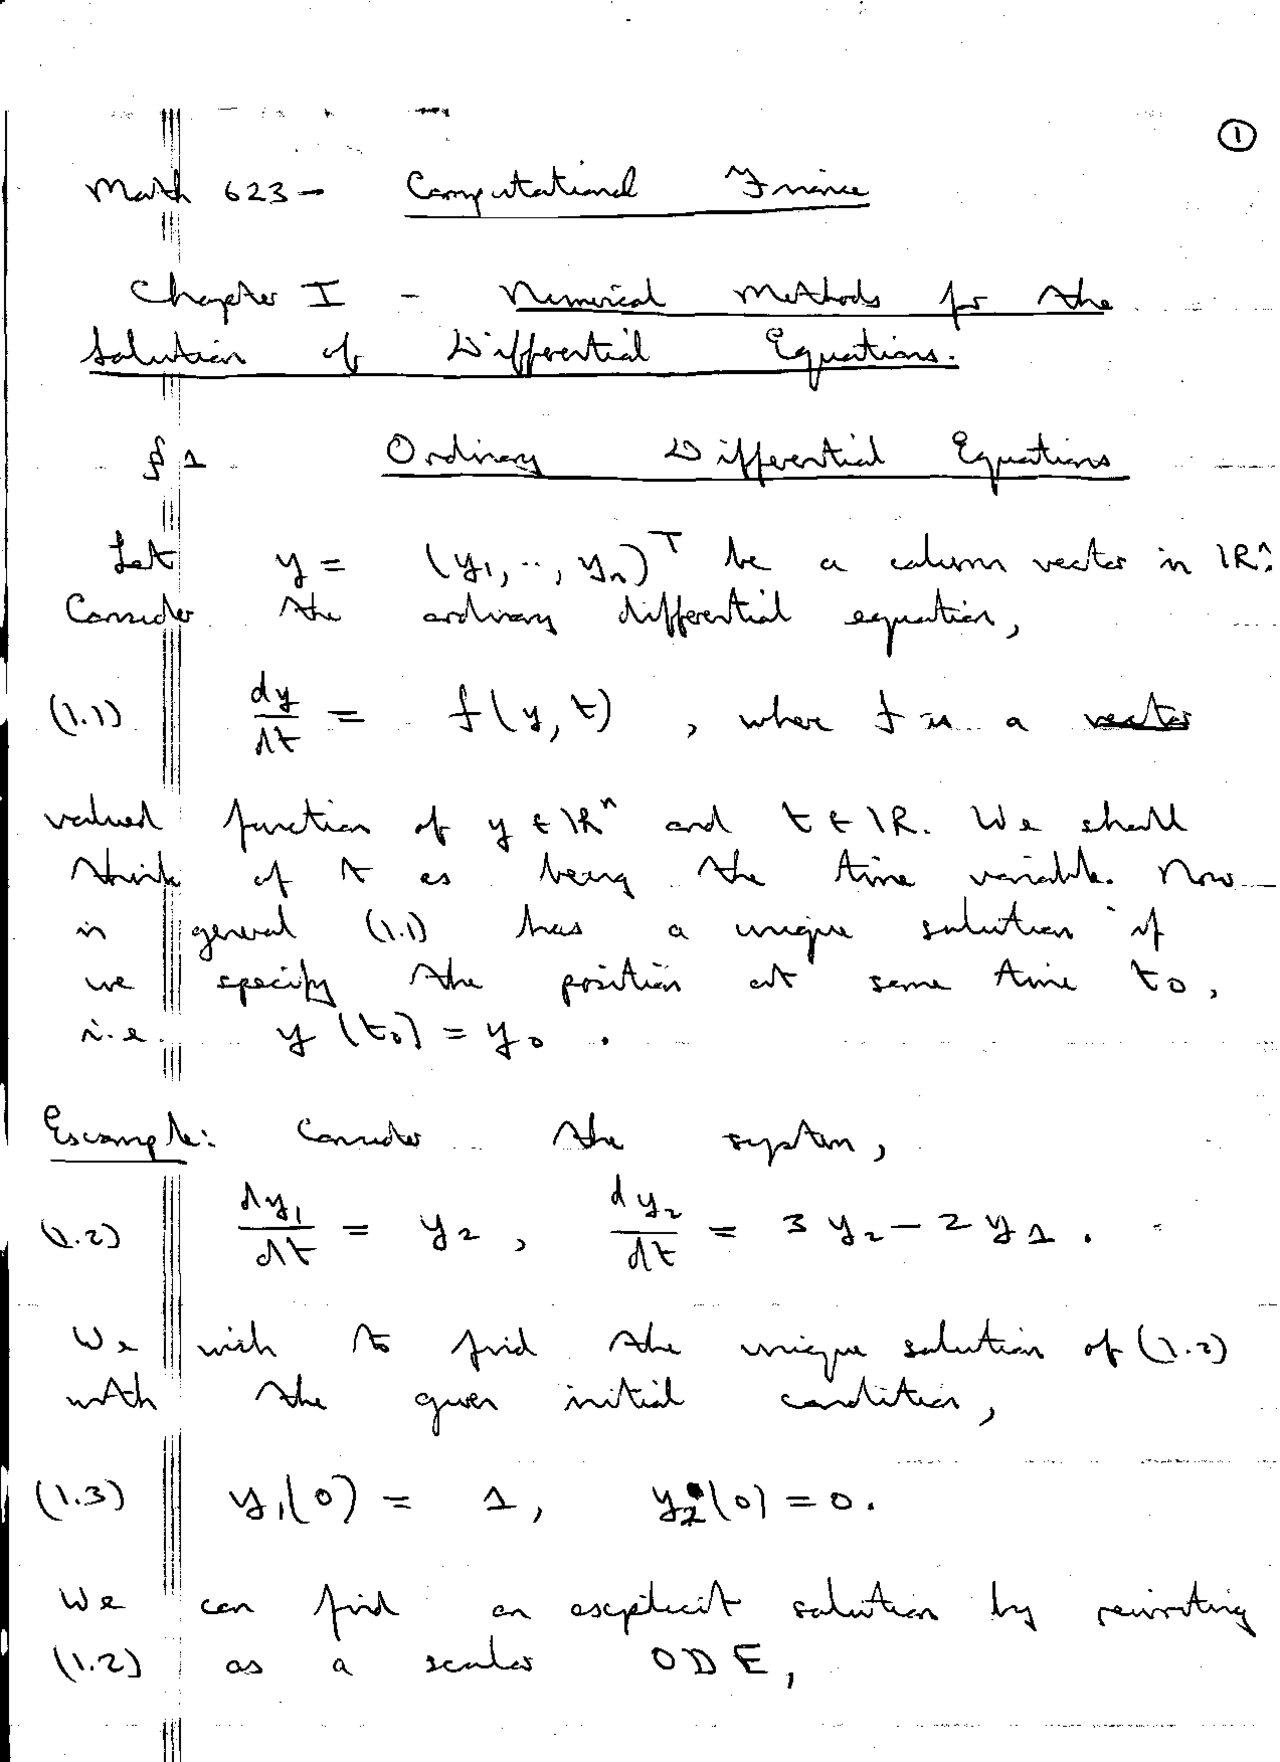 ①
Math 623 - Computational Finance
Chapter I - Numerical Methods for the
Solution of Differential Equations.
§ 1 Ordinary Differential Equations
Let y = (y₁, .., yₙ)ᵀ be a column vector in ℝⁿ.
Consider the ordinary differential equation,
(1.1) dy/dt = f(y, t) , where f is a vector
valued function of y ∈ ℝⁿ and t ∈ ℝ. We shall
think of t as being the time variable. Now
in general (1.1) has a unique solution if
we specify the position at some time t₀,
i.e. y(t₀) = y₀ .
Example: Consider the system,
(1.2) dy₁/dt = y₂ , dy₂/dt = 3y₂ - 2y₁ .
We wish to find the unique solution of (1.2)
with the given initial condition,
(1.3) y₁(0) = 1, y₂(0) = 0.
We can find an explicit solution by rewriting
(1.2) as a scalar ODE,